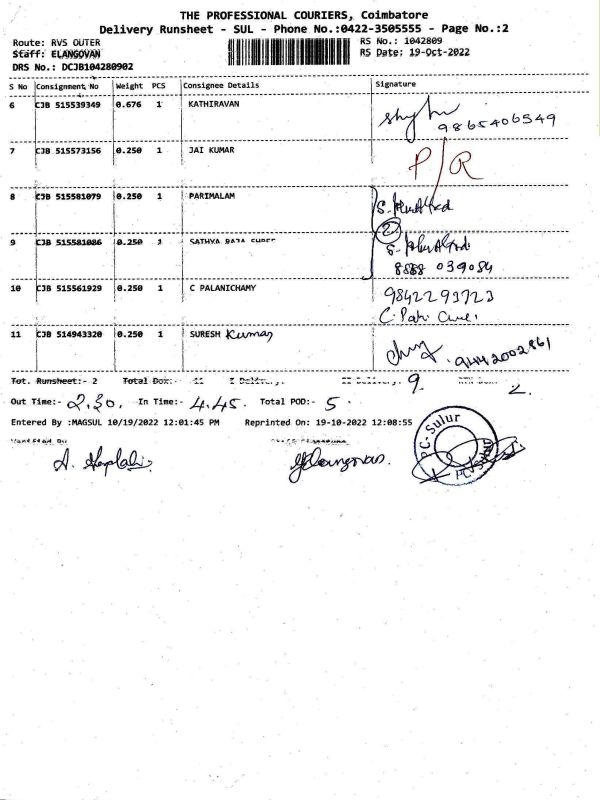 THE PROFESSIONAL COURIERS, Coimbatore
Delivery Runsheet - SUL - Phone No.:0422-3505555 - Page No.:2
Route: RVS OUTER
RS No.: 1042809
Staff: ELANGOVAN
RS Date: 19-Oct-2022
DRS No.: DCJB104280902
S No Consignment No Weight PCS Consignee Details Signature
6 CJB 515539349 0.676 1 KATHIRAVAN
9865406549
7 CJB 515573156 0.250 1 JAI KUMAR
P/R
8 CJB 515581079 0.250 1 PARIMALAM
2
9 CJB 515581086 0.250 1 SATHYA RAJA SHREE
8888 039084
10 CJB 515561929 0.250 1 C PALANICHAMY
9842293723
11 CJB 514943320 0.250 1 SURESH Kumar
9442002861
Tot. Runsheet:- 2 Total Dox:- 11 9. 2.
Out Time:- 2.30. In Time:- 4.45. Total POD:- 5
Entered By :MAGSUL 10/19/2022 12:01:45 PM Reprinted On: 19-10-2022 12:08:55
PC-Sulur